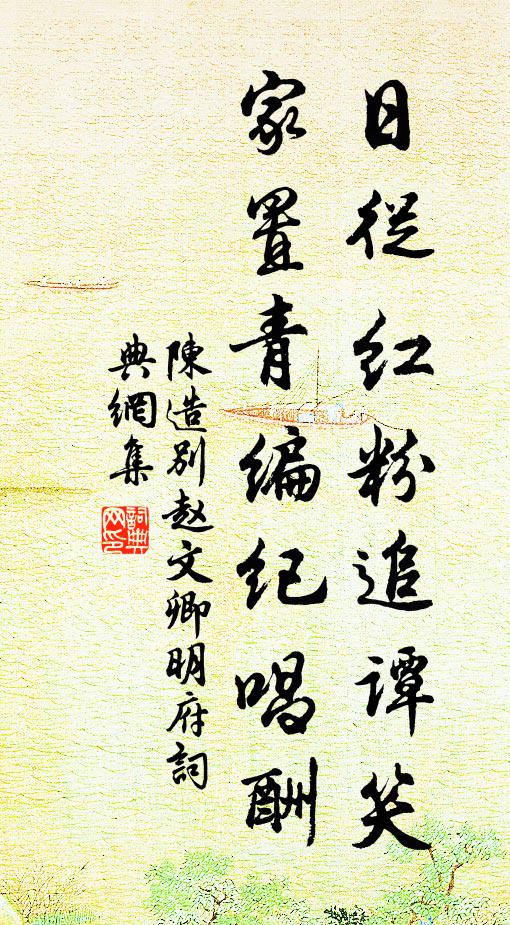 日從红粉追譚笑
家置青编纪唱酬
陳造别赵文卿明府詞
典網集
詞典网印